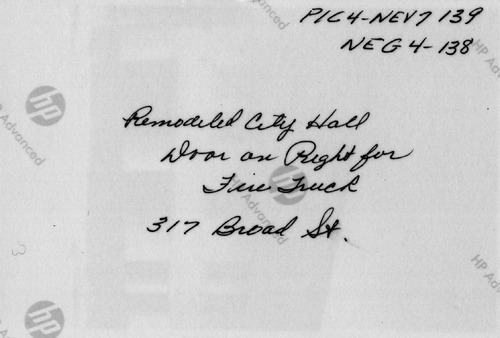 PIC4-NEV7 139
NEG4-138
Remodeled City Hall
Door on Right for
Fire Truck
317 Broad St.
hp
HP Advanced
HP Advanced
hp
HP Advanced
hp
HP Advanced
hp
HP Advanced
hp